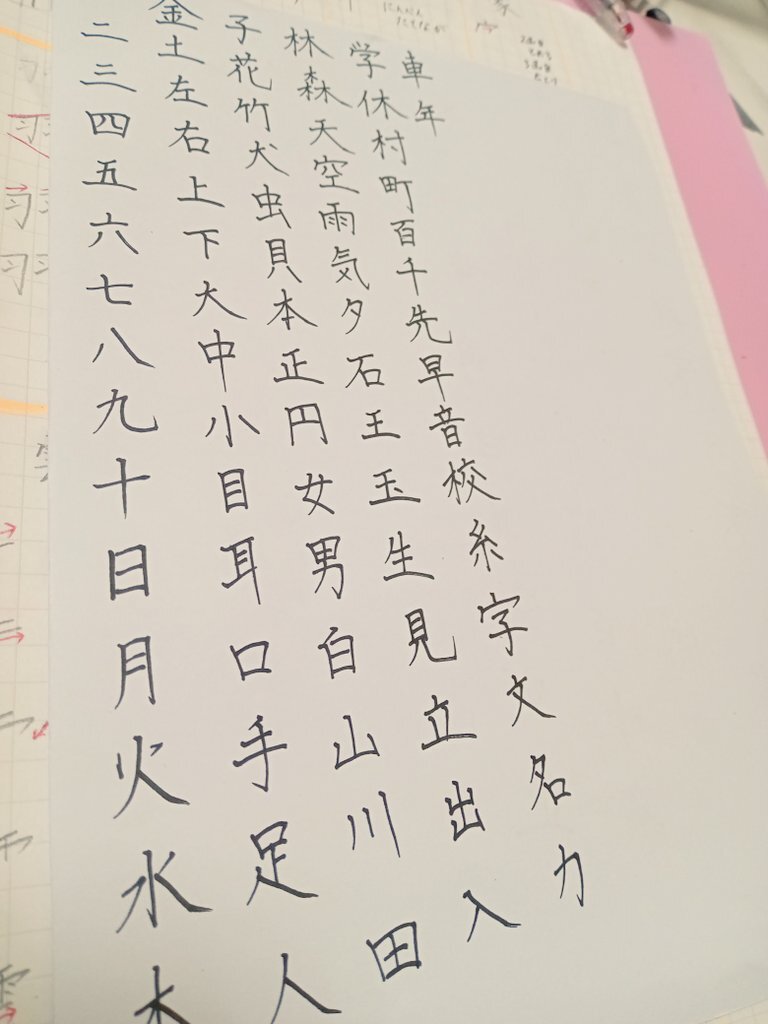 二三四五六七八九十日月火水木
金土左右上下大中小目耳口手足人
子花竹犬虫貝本正円女男白山川田
林森天空雨気夕石王玉生見立出入
学休村町百千先早音校糸字文名力
車年